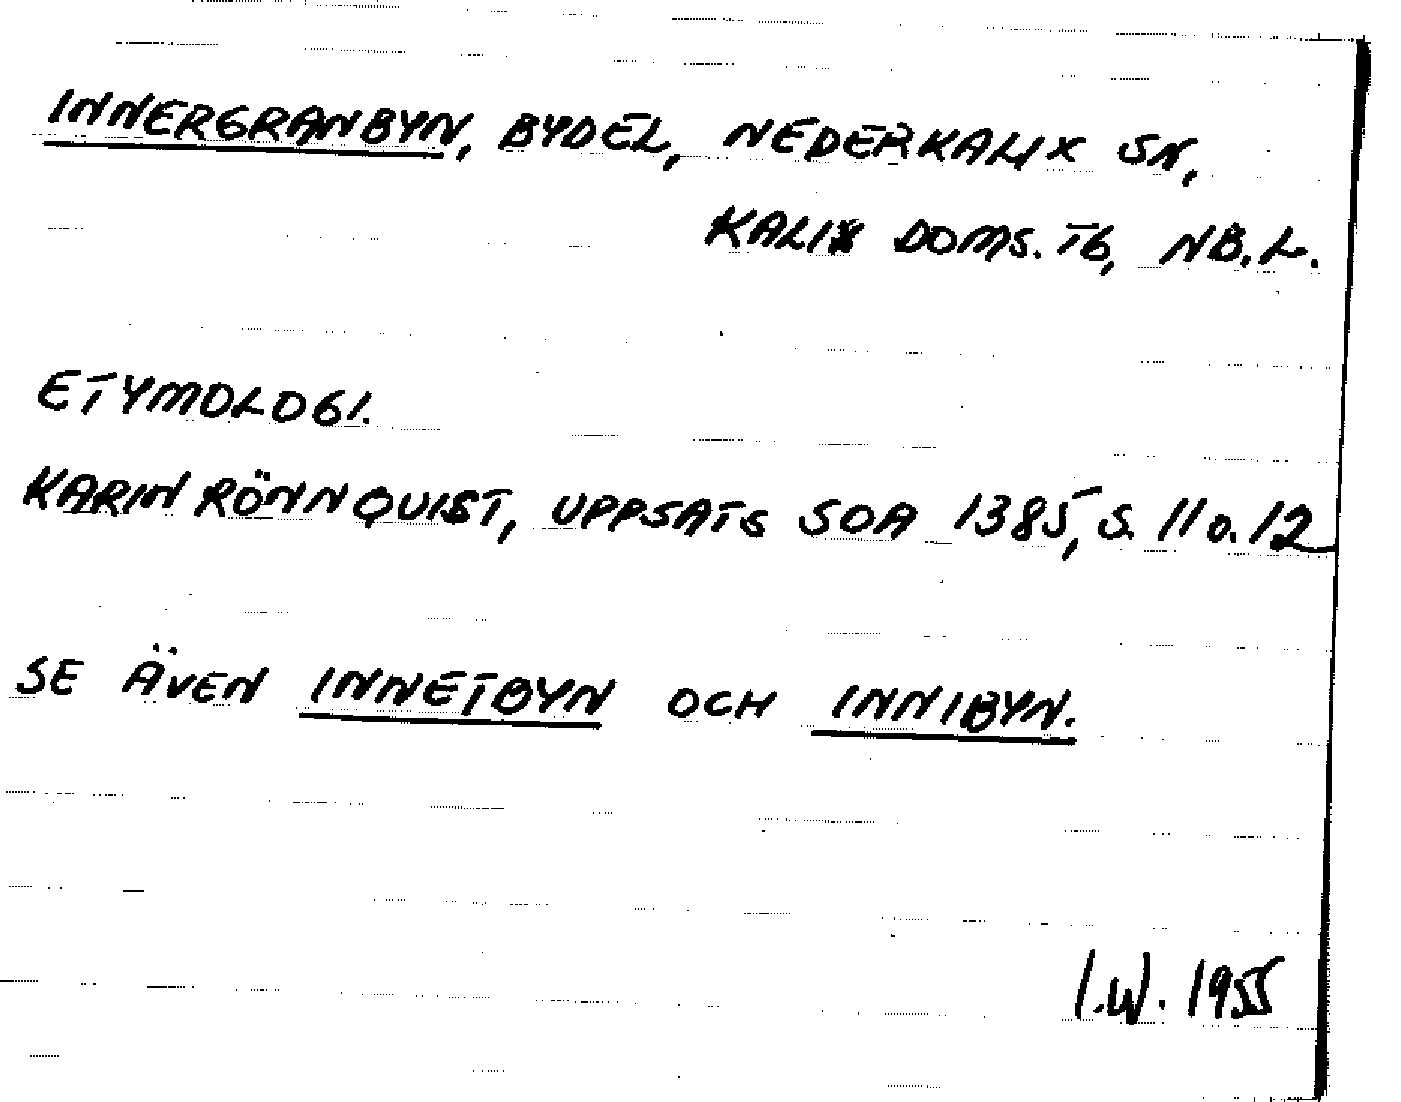 INNERGRANBYN, BYDEL, NEDERKALIX SN,
KALIX DOMS. TG, NB.L.
ETYMOLOGI.
KARIN RÖNNQUIST, UPPSATS SOA 1385, S. 11 o. 12
SE ÄVEN INNETBYN OCH INNIBYN.
I.W. 1955